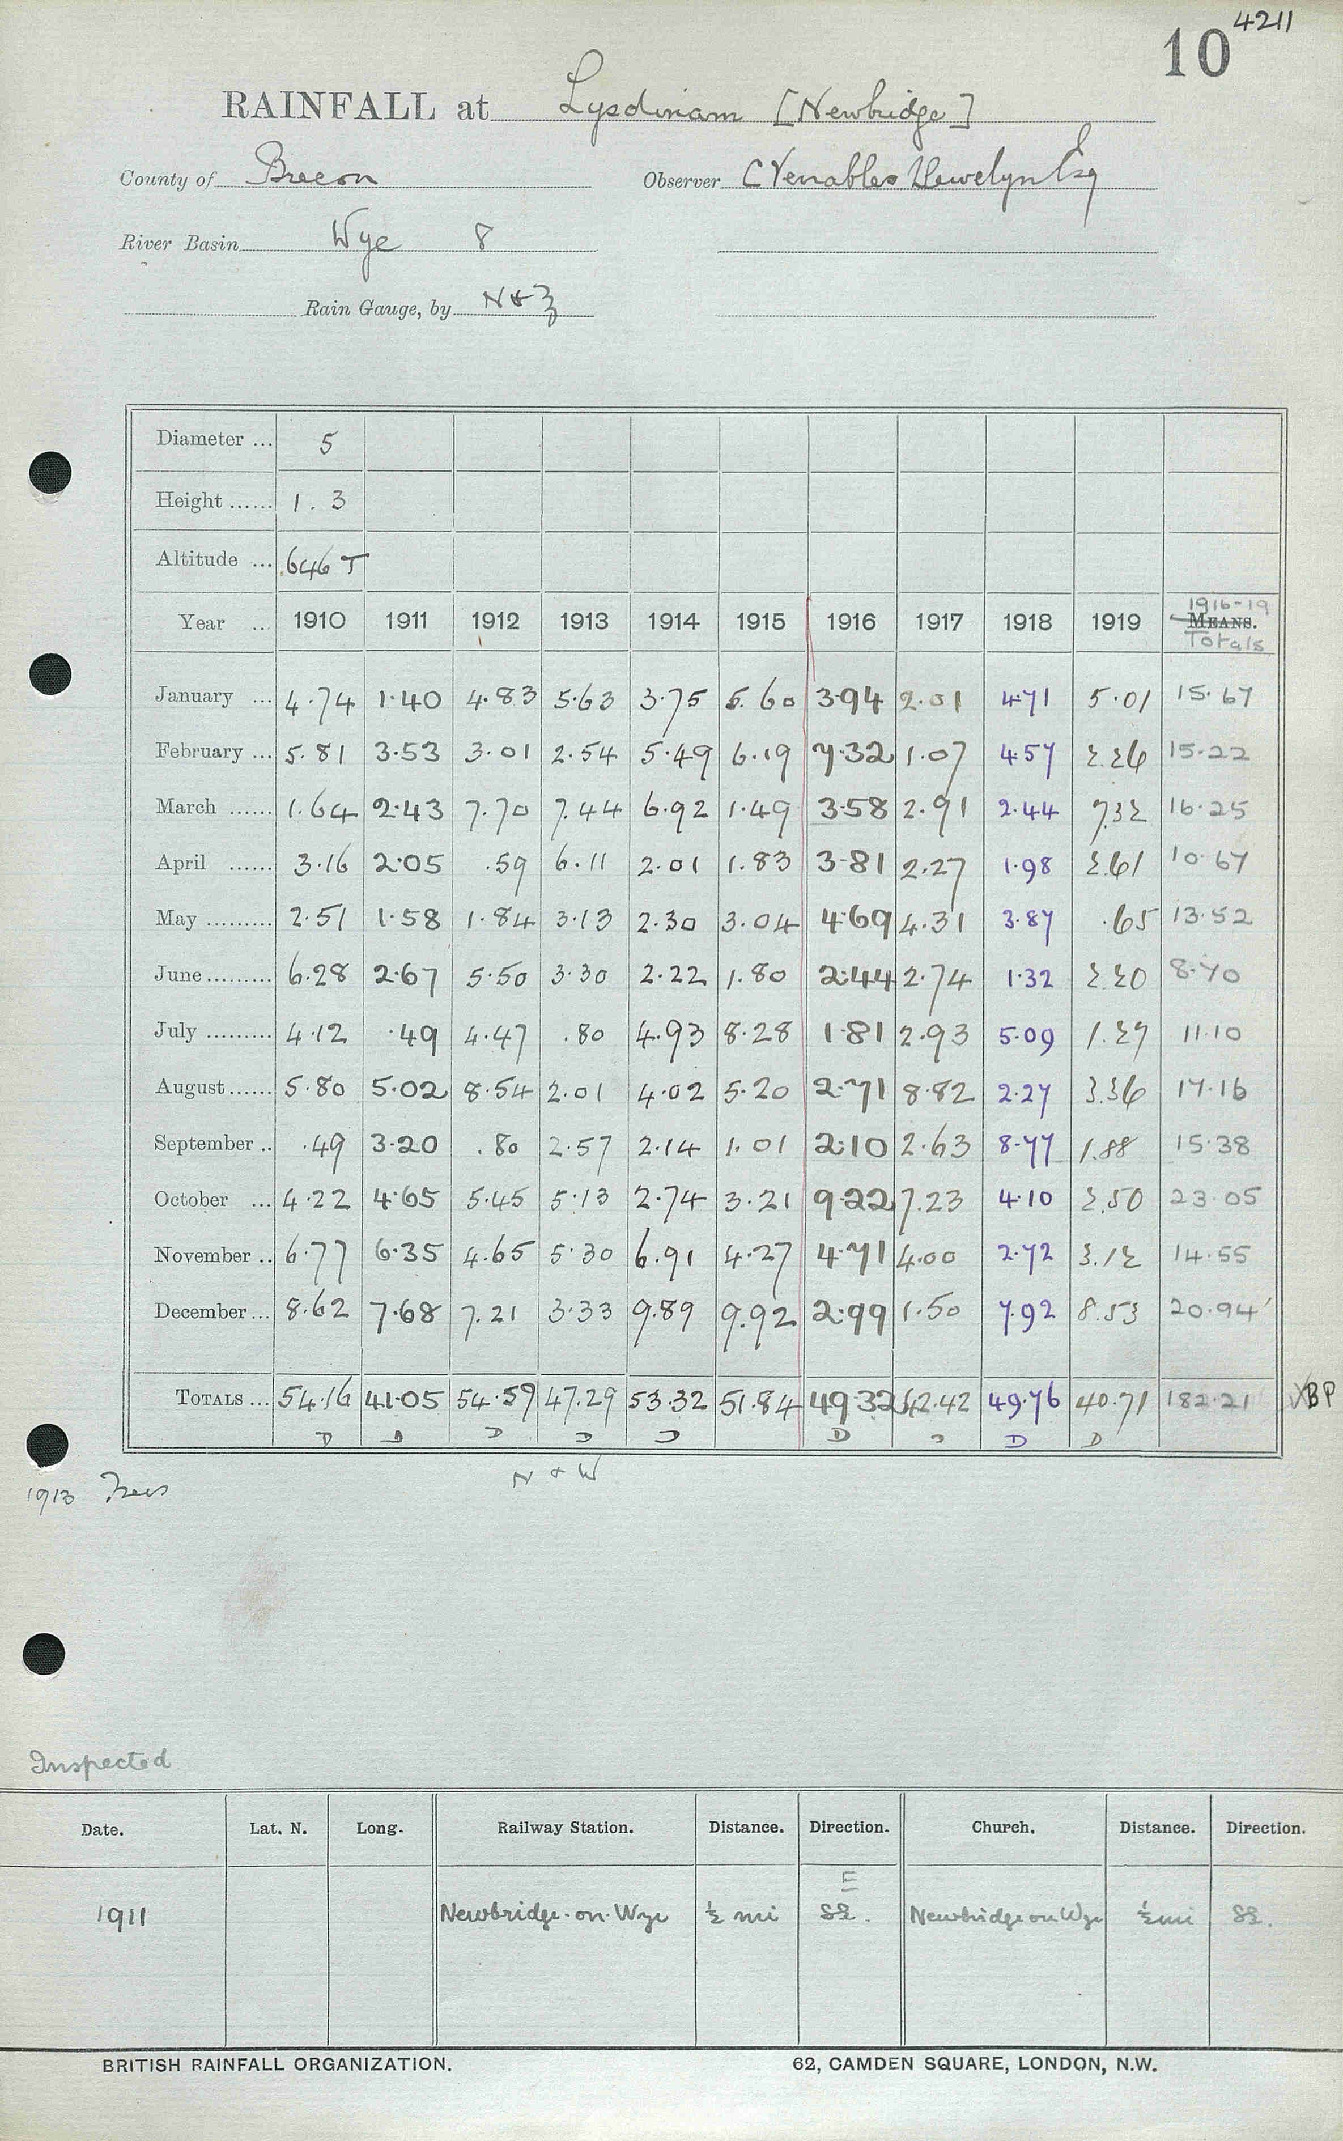 4211
10
RAINFALL at Lysdinam [Newbridge]
County of Brecon Observer C Venables Llewelyn Esq
River Basin Wye 8
Rain Gauge, by N & Z
Diameter ... 5
Height ...... 1. 3
Altitude ... 646 T
1916-19
Year ... 1910 1911 1912 1913 1914 1915 1916 1917 1918 1919 MEANS.
Totals
January ... 4.74 1.40 4.83 5.63 3.75 5.60 3.94 2.01 4.71 5.01 15.67
February ... 5.81 3.53 3.01 2.54 5.49 6.19 7.32 1.07 4.57 2.26 15.22
March ...... 1.64 2.43 7.70 7.44 6.92 1.49 3.58 2.91 2.44 7.32 16.25
April ...... 3.16 2.05 .59 6.11 2.01 1.83 3.81 2.27 1.98 2.61 10.67
May ......... 2.51 1.58 1.84 3.13 2.30 3.04 4.69 4.31 3.87 .65 13.52
June ......... 6.28 2.67 5.50 3.30 2.22 1.80 2.44 2.74 1.32 2.20 8.70
July ......... 4.12 .49 4.47 .80 4.93 8.28 1.81 2.93 5.09 1.27 11.10
August ...... 5.80 5.02 8.54 2.01 4.02 5.20 2.71 8.82 2.27 3.36 17.16
September .. .49 3.20 .80 2.57 2.14 1.01 2.10 2.63 8.77 1.88 15.38
October ... 4.22 4.65 5.45 5.13 2.74 3.21 9.22 7.23 4.10 2.50 23.05
November .. 6.77 6.35 4.65 5.30 6.91 4.27 4.71 4.00 2.72 3.12 14.55
December ... 8.62 7.68 7.21 3.33 9.89 9.92 2.99 1.50 7.92 8.53 20.94
TOTALS ... 54.16 41.05 54.59 47.29 53.32 51.84 49.32 42.42 49.76 40.71 182.21 XBP
D D D D D D D D D
N & W
1913 Trees
Inspected
Date. Lat. N. Long. Railway Station. Distance. Direction. Church. Distance. Direction.
E
1911 Newbridge-on-Wye ½ mi SE. Newbridge on Wye ½ mi SE.
BRITISH RAINFALL ORGANIZATION. 62, CAMDEN SQUARE, LONDON, N.W.